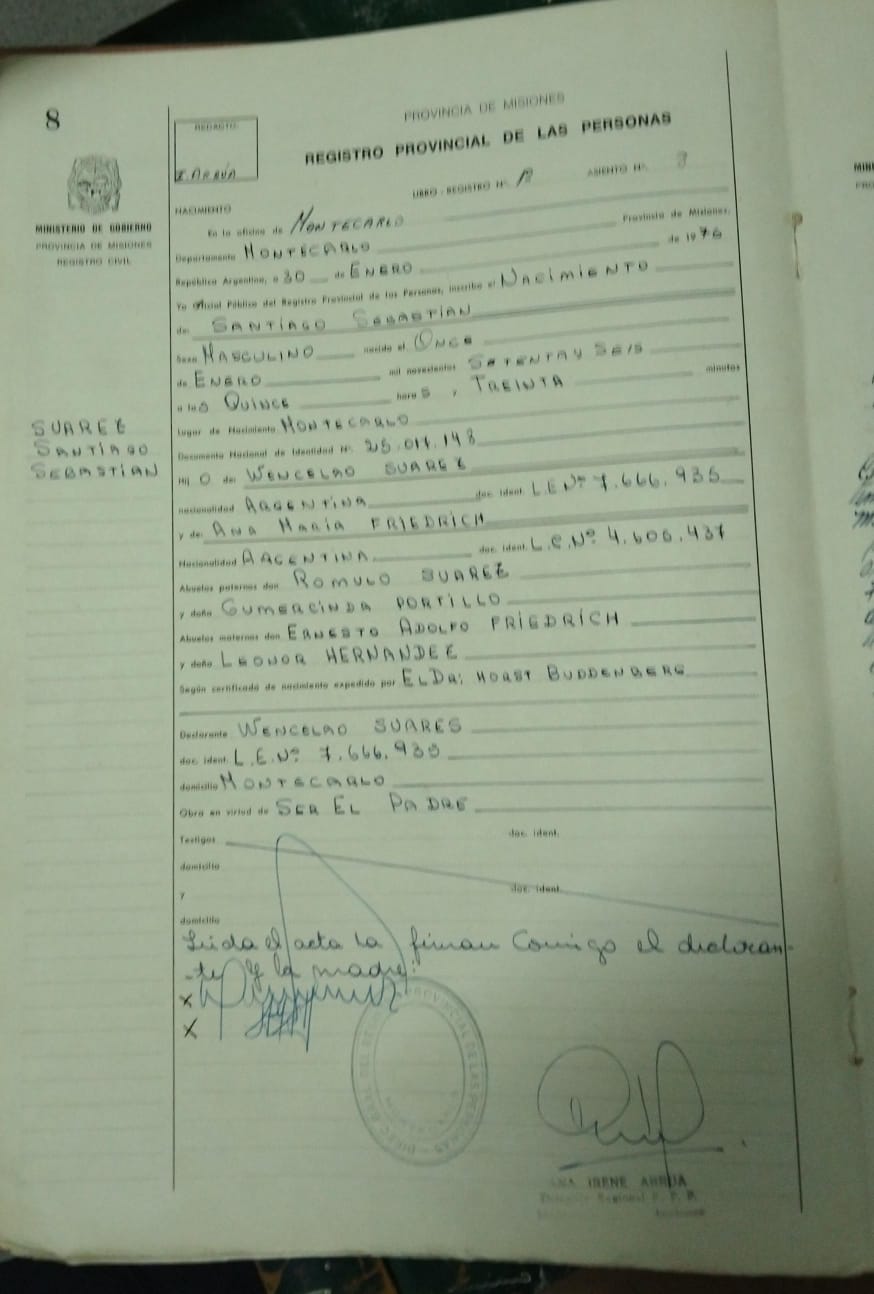 8
MINISTERIO DE GOBIERNO
PROVINCIA DE MISIONES
REGISTRO CIVIL
SUAREZ
SANTIAGO
SEBASTIAN
REDACTO:
I. ARRÚA
PROVINCIA DE MISIONES
REGISTRO PROVINCIAL DE LAS PERSONAS
LIBRO - REGISTRO Nº. ASIENTO Nº.
NACIMIENTO
En la oficina de MONTECARLO
Departamento MONTECARLO Provincia de Misiones,
República Argentina, a 30 de ENERO de 1976
Yo Oficial Público del Registro Provincial de las Personas, inscribo el NACIMIENTO
de: SANTIAGO SEBASTIAN
Sexo MASCULINO nacido el ONCE
de ENERO mil novecientos SETENTA Y SEIS
a las QUINCE horas y TREINTA minutos
Lugar de Nacimiento MONTECARLO
Documento Nacional de Identidad Nº. 25.017.148
Hijo de: WENCELAO SUAREZ
nacionalidad ARGENTINA doc. ident. L.E.Nº 7.666.935
y de: ANA MARÍA FRIEDRICH
Nacionalidad ARGENTINA doc. ident. L.C.Nº 4.606.437
Abuelos paternos don ROMULO SUAREZ
y doña GUMERCINDA PORTILLO
Abuelos maternos don ERNESTO ADOLFO FRIEDRICH
y doña LEONOR HERNANDEZ
Según certificado de nacimiento expedido por EL DR: HORST BUDDENBERG
Declarante WENCELAO SUARES
doc. ident. L.E.Nº 7.666.935
domicilio MONTECARLO
Obra en virtud de SER EL PADRE
Testigos doc. ident.
domicilio
y doc. ident.
domicilio
Leida el acta la firman Comigo el declaran-
-te y la madre:
X
X
PROVINCIAL DE LAS PERSONAS
IRENE ARRUA